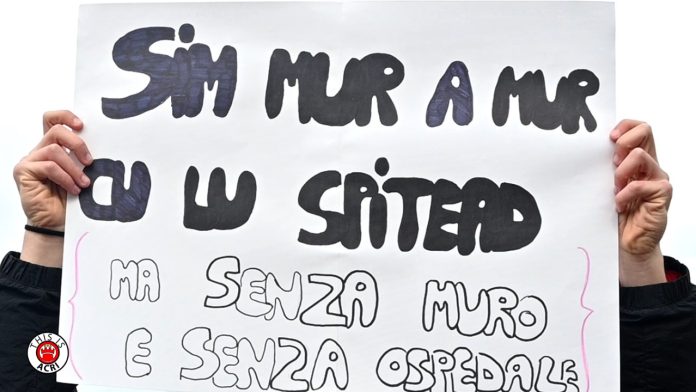 SIM MUR A MUR
CU LU SPITEAD
MA SENZA MURO
E SENZA OSPEDALE
THIS IS
ACRI